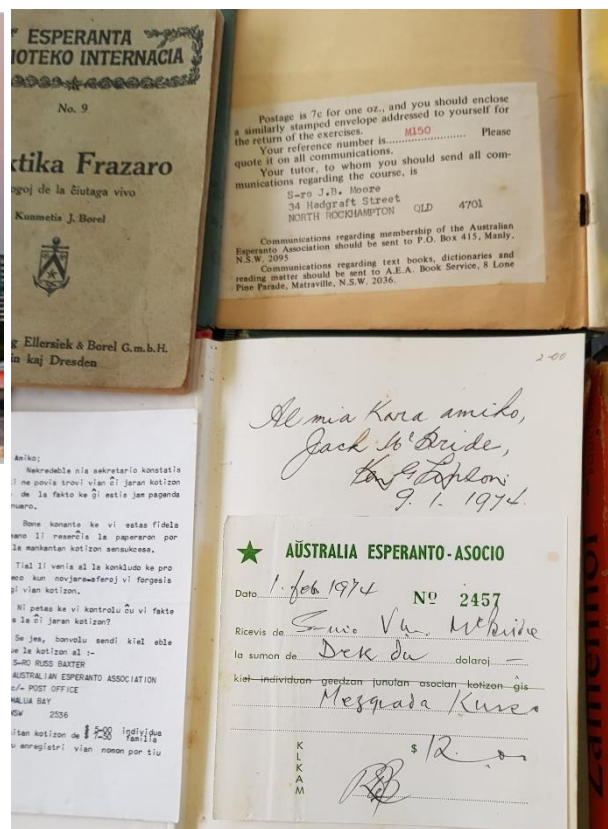 ESPERANTA
IOTEKO INTERNACIA
No. 9
ktika Frazaro
ogoj de la ĉiutaga vivo
Kunmetis J. Borel
g Ellersiek & Borel G.m.b.H.
in kaj Dresden
Postage is 7c for one oz., and you should enclose
a similarly stamped envelope addressed to yourself for
the return of the exercises.
Your reference number is.....M150..... Please
quote it on all communications.
Your tutor, to whom you should send all com-
munications regarding the course, is
S-ro J.B. Moore
34 Hadgraft Street
NORTH ROCKHAMPTON QLD 4701
Communications regarding membership of the Australian
Esperanto Association should be sent to P.O. Box 415, Manly,
N.S.W. 2095
Communications regarding text books, dictionaries and
reading matter should be sent to A.E.A. Book Service, 8 Lone
Pine Parade, Matraville, N.S.W. 2036.
2-00
Al mia Kara amiko,
Jack McBride,
9. 1. 1974.
Amiko;
Nekredeble nia sekretario konstatis
l ne povis trovi vian ĉi jaran kotizon
de la fakto ke ĝi estis jam pagenda
nuaro.
Bone konante ke vi estas fidela
ano li reserĉis la paperaron por
la mankantan kotizon sensukcese.
Tial li venis al la konkludo ke pro
eco kun novjara-aferoj vi forgesis
gi vian kotizon.
Ni petas ke vi kontrolu ĉu vi fakte
s la ĉi jaran kotizon?
Se jes, bonvolu sendi kiel eble
e la kotizon al :-
S-RO RUSS BAXTER
AUSTRALIAN ESPERANTO ASSOCIATION
c/- POST OFFICE
MALUA BAY
NSW 2536
itan kotizon de $ 5-00 individua
7-50 familia
u enregistri vian nomon por tiu
AŬSTRALIA ESPERANTO-ASOCIO
Dato 1. feb 1974 Nº 2457
Ricevis de McBride
la sumon de Dek du dolaroj —
kiel individuan geedzan junulan asocian kotizon ĝis
Mezgrada Kurso
KLKAM
$ 12.00
Zamenhof